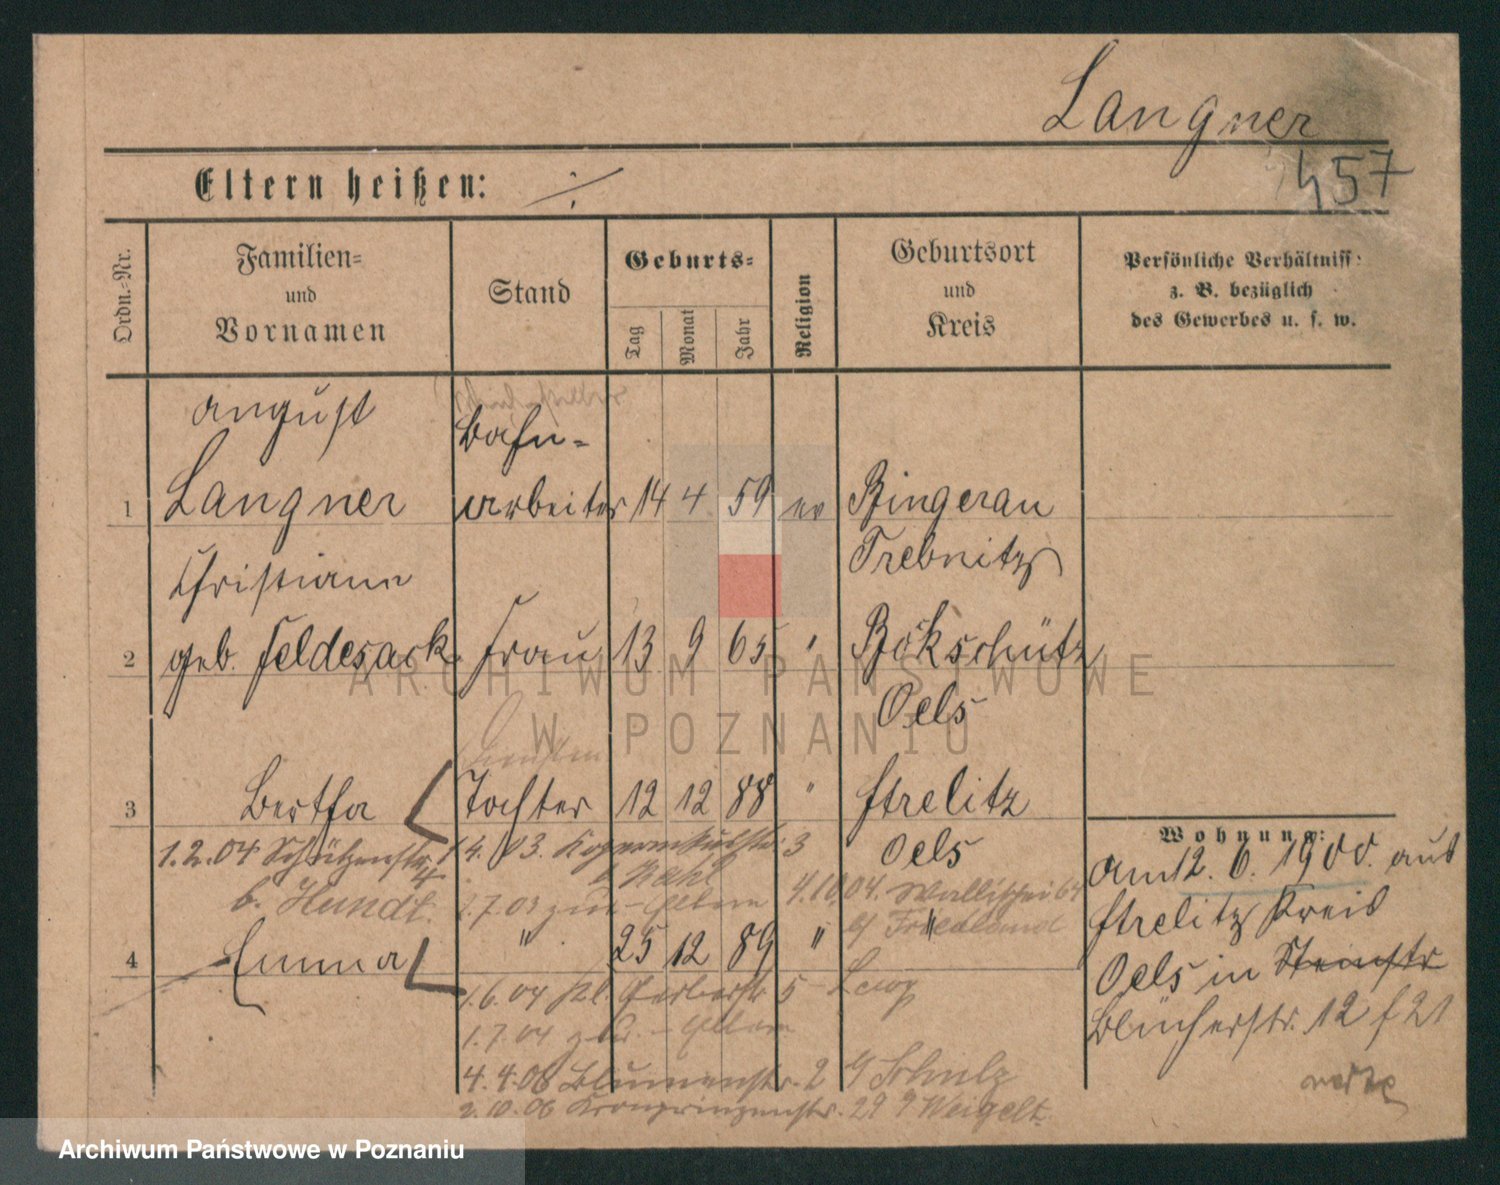 Langner
457
Eltern heißen: ./.
Ordn.=Nr.
Familien=
und
Vornamen
Stand
Geburts=
Tag
Monat
Jahr
Religion
Geburtsort
und
Kreis
Persönliche Verhältniss:
z. B. bezüglich
des Gewerbes u. s. w.
August
Bahn=
1 Langner arbeiter 14 4 59 ev Bingerau
Trebnitz
Christiane
2 geb. Feldesack. Frau 13 9 65 " Bökschütz
Oels
3 Bertha Tochter 12 12 88 " Strelitz
Oels
1.2.04 Schützenstr.
b. Hundt.
14. 03. 3
b. Kahl
1.7.03 zur Eltern
4.10.04. Wallischei 64
b/ Friedland
4 Emma " 25 12 89 " "
1.6.04 kl. Gerberstr 5
1.7.04 Eltern
4.4.06 Blumenstr. 2 b/ Schulz
2.10.06 Kronprinzenstr. 29 Weigelt.
Wohnung:
am 12. 6. 1900. aus
Strelitz Kreis
Oels in Steinstr
Blücherstr. 12
ARCHIWUM PAŃSTWOWE
W POZNANIU
Archiwum Państwowe w Poznaniu